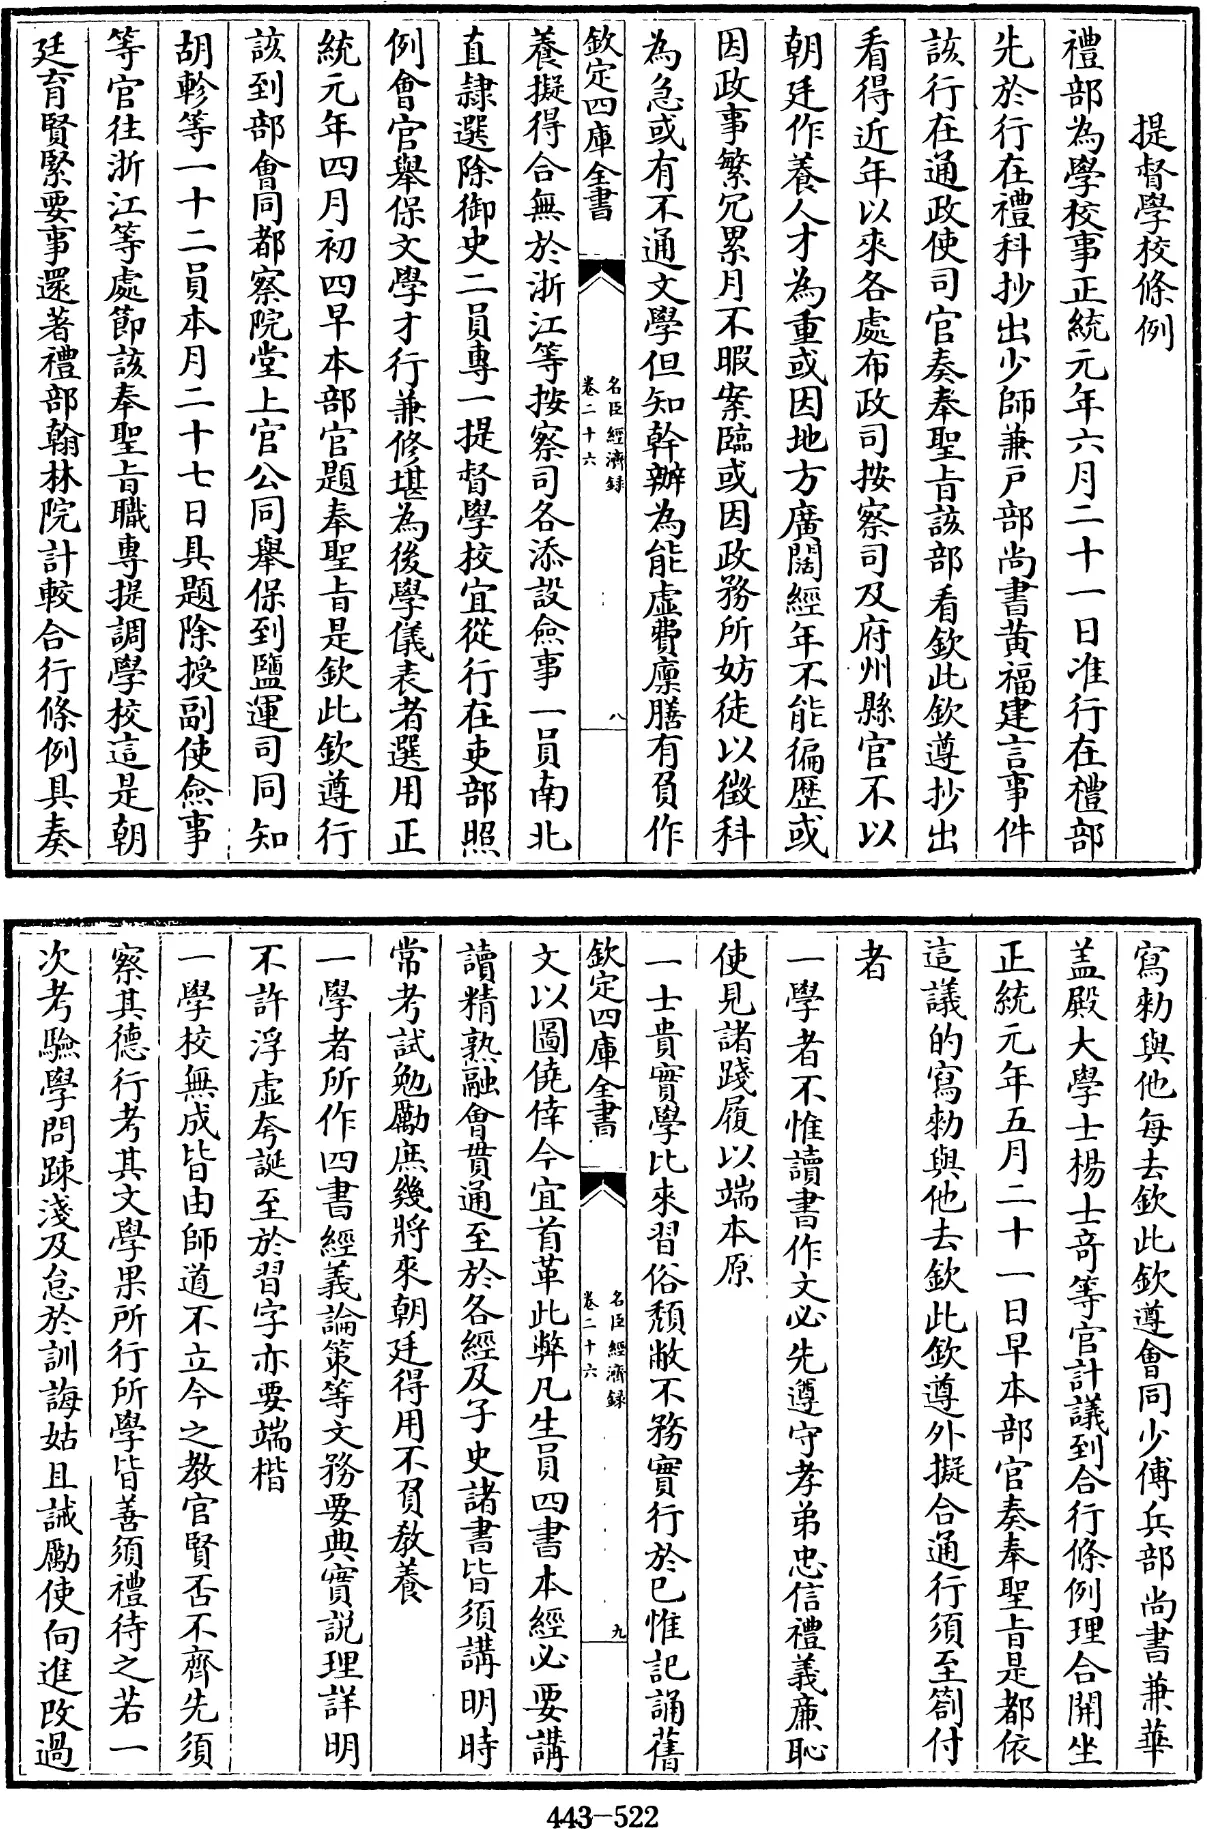 提督學校條例
禮部為學校事正統元年六月二十一日准行在禮部
先於行在禮科抄出少師兼戶部尚書黃福建言事件
該行在通政使司官奏奉聖旨該部看欽此欽遵抄出
看得近年以來各處布政司按察司及府州縣官不以
朝廷作養人才為重或因地方廣闊經年不能徧歷或
因政事繁冗累月不暇案臨或因政務所妨徒以徵科
為急或有不通文學但知幹辦為能虛費廩膳有負作
欽定四庫全書
名臣經濟錄
卷二十六
八
養擬得合無於浙江等按察司各添設僉事一員南北
直隸選除御史二員專一提督學校宜從行在吏部照
例會官舉保文學才行兼修堪為後學儀表者選用正
統元年四月初四早本部官題奉聖旨是欽此欽遵行
該到部會同都察院堂上官公同舉保到鹽運司同知
胡軫等一十二員本月二十七日具題除授副使僉事
等官往浙江等處節該奉聖旨職專提調學校這是朝
廷育賢緊要事還著禮部翰林院計較合行條例具奏
寫勅與他每去欽此欽遵會同少傅兵部尚書兼華
蓋殿大學士楊士奇等官計議到合行條例理合開坐
正統元年五月二十一日早本部官奏奉聖旨是都依
這議的寫勅與他去欽此欽遵外擬合通行須至劄付
者
一學者不惟讀書作文必先遵守孝弟忠信禮義廉恥
使見諸踐履以端本原
一士貴實學比來習俗頹敝不務實行於己惟記誦舊
欽定四庫全書
名臣經濟錄
卷二十六
九
文以圖僥倖今宜首革此弊凡生員四書本經必要講
讀精熟融會貫通至於各經及子史諸書皆須講明時
常考試勉勵庶幾將來朝廷得用不負教養
一學者所作四書經義論策等文務要典實說理詳明
不許浮虛夸誕至於習字亦要端楷
一學校無成皆由師道不立今之教官賢否不齊先須
察其德行考其文學果所行所學皆善須禮待之若一
次考驗學問疎淺及怠於訓誨姑且誡勵使向進改過
443-522